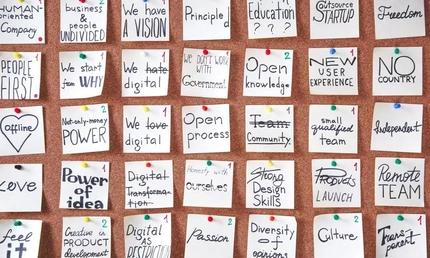 HUMAN-
oriented
Company.
business
&
people
UNDIVIDED
2
We have
A VISION
Principle
Education
? ? ?
Outsource
STARTUP
Freedom
PEOPLE
FIRST.
We start
from WHY
We hate
digital
WE DON'T WORK
WITH
Government
Open
knowledge
2
NEW
USER
EXPERIENCE
1
NO
COUNTRY
Offline
Not-only-money
POWER
We love
digital
1
Open
process
Team
Community
1
small
qualified
team
Independent
Love
Power
of
idea
Digital
Transforma-
tion
1
Honesty with
ourselves
1
Strong
Design
Skills
Products
LAUNCH
Remote
TEAM
feel
it
Creative in
PRODUCT
development
2
Digital
AS
DESTRUCTION
1
Passion
2
Diversity
of
opinions
Culture
2
Trans
parent